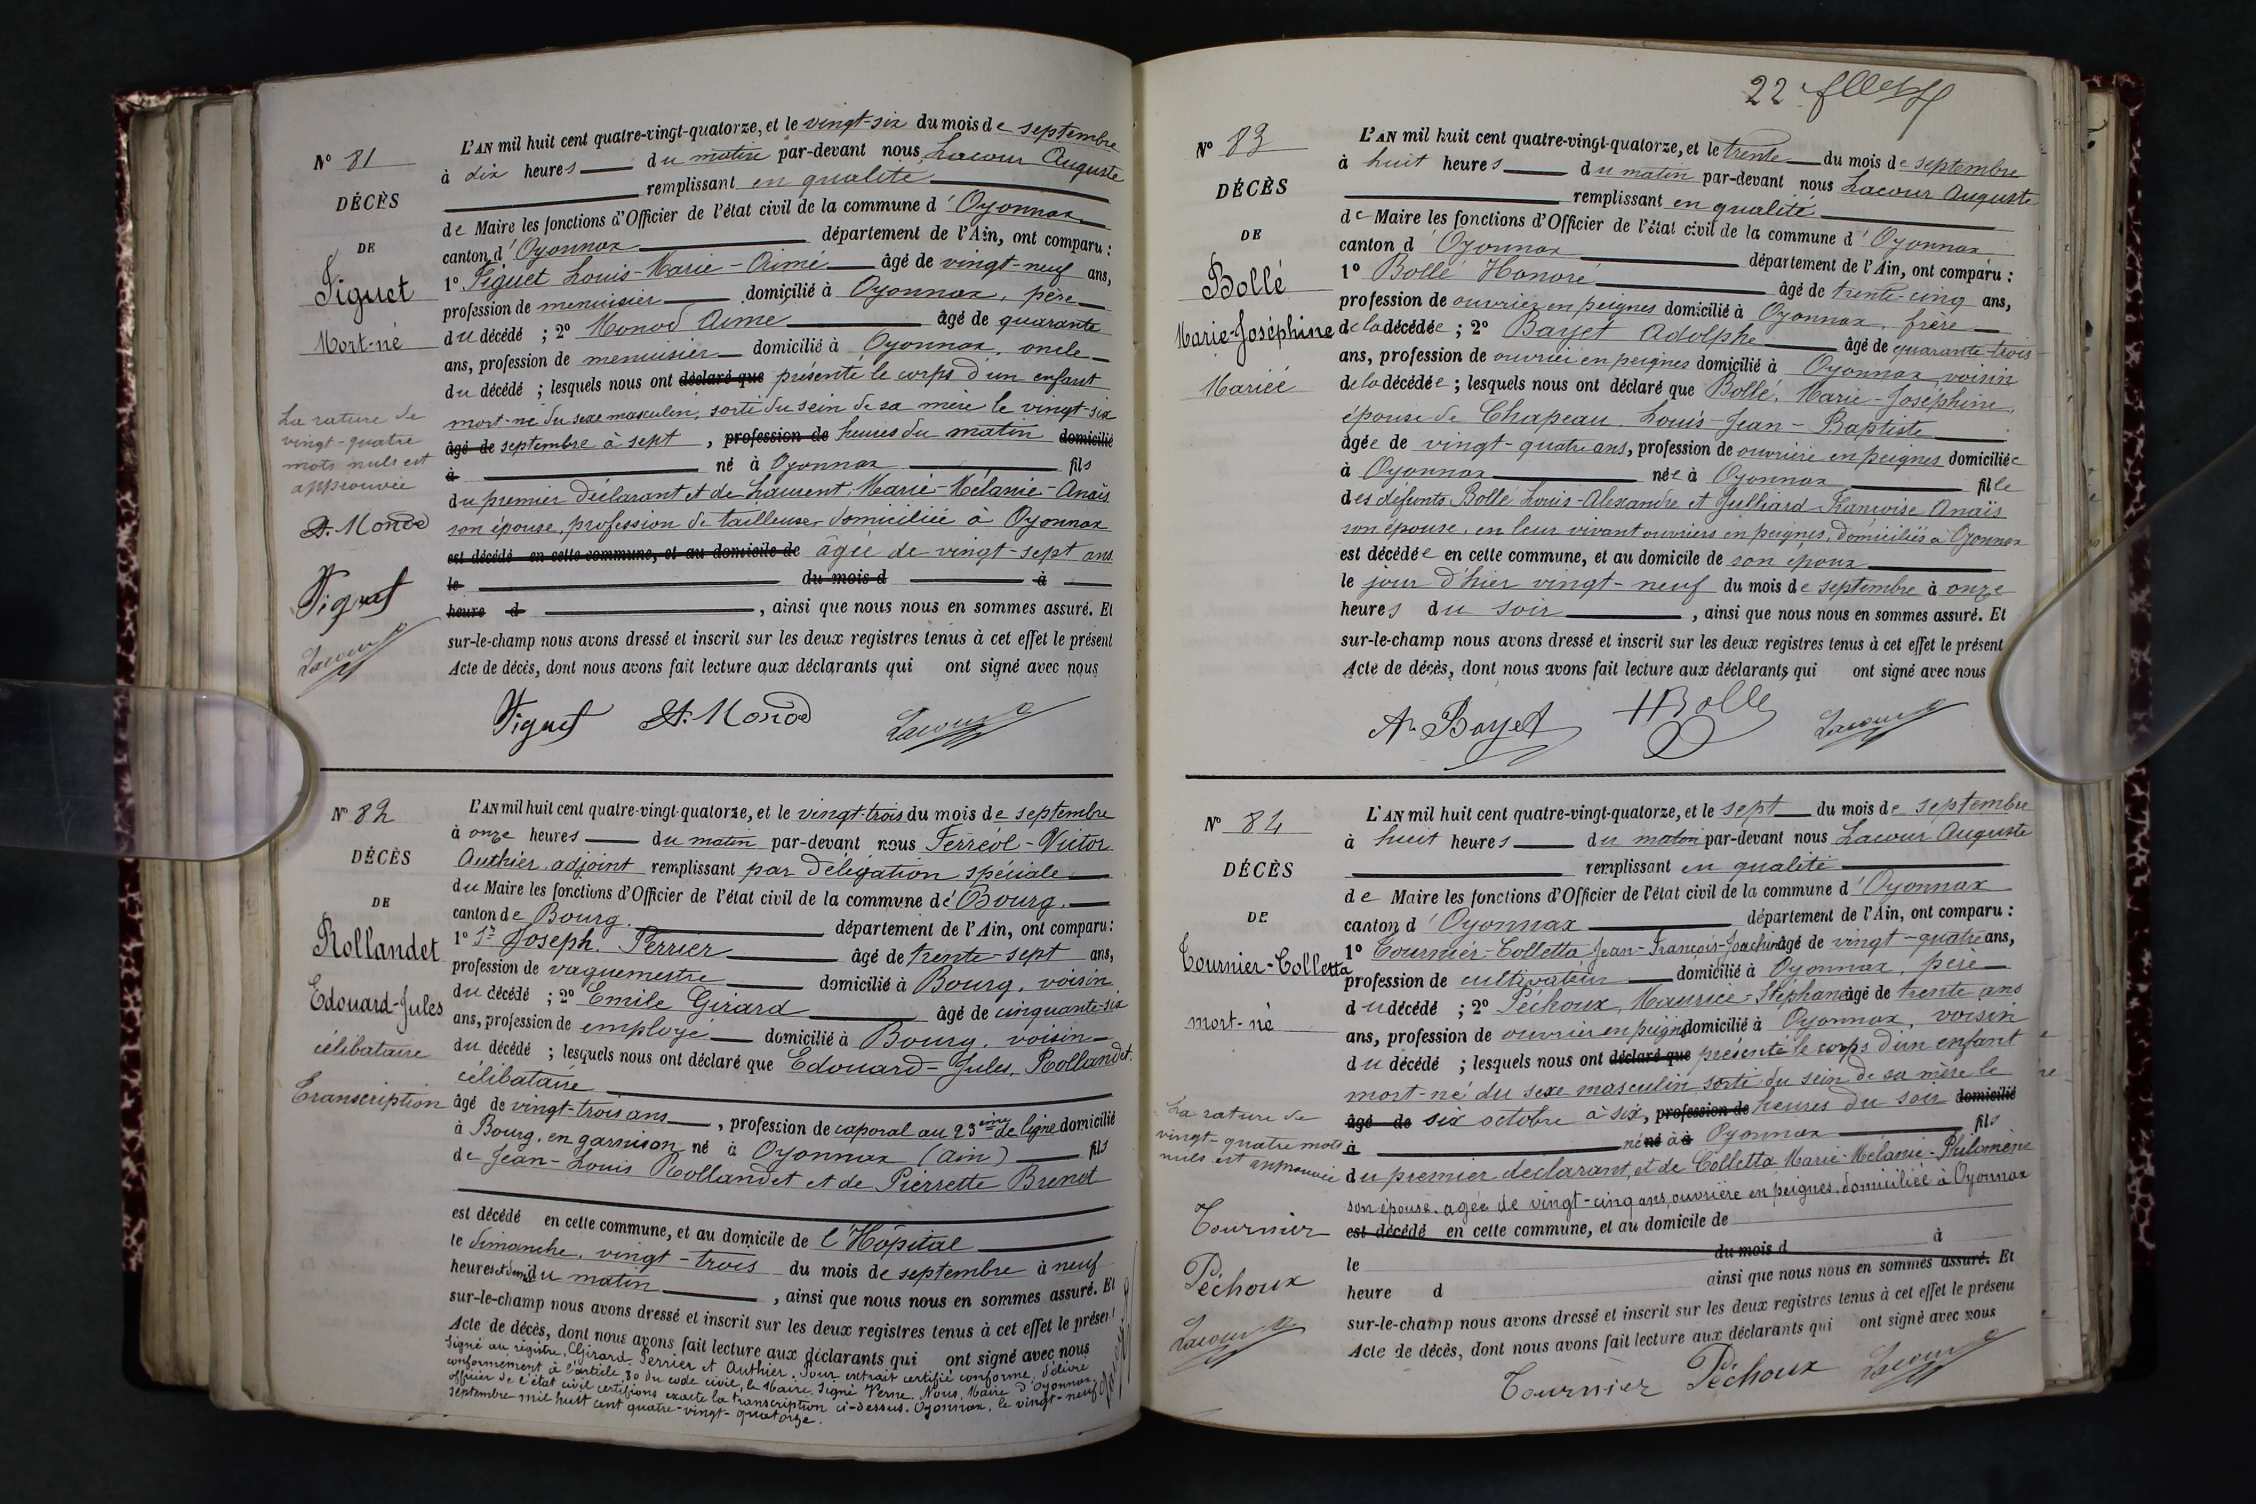 N° 81
DÉCÈS
DE
Figuet
Mort-né
La rature de
vingt-quatre
mots nuls est
approuvée
A. Monod
Figuet
Lacour
L'AN mil huit cent quatre-vingt-quatorze, et le vingt-six du mois de septembre
à dix heures du matin par-devant nous Lacour Auguste
remplissant en qualité
de Maire les fonctions d'Officier de l'état civil de la commune d'Oyonnax
canton d'Oyonnax département de l'Ain, ont comparu :
1° Figuet Louis-Marie-Aimé âgé de vingt-neuf ans,
profession de menuisier domicilié à Oyonnax, père
du décédé ; 2° Monod Aimé âgé de quarante
ans, profession de menuisier domicilié à Oyonnax, oncle
du décédé ; lesquels nous ont déclaré que présenté le corps d'un enfant
mort-né du sexe masculin, sorti du sein de sa mère le vingt-six
âgé de septembre à sept , profession de heures du matin domicilié
à né à Oyonnax fils
du premier déclarant et de Laurent Marie-Mélanie-Anaïs
son épouse, profession de tailleuse, domiciliée à Oyonnax
est décédé en cette commune, et au domicile de âgée de vingt-sept ans
le du mois d à
heure d , ainsi que nous nous en sommes assuré. Et
sur-le-champ nous avons dressé et inscrit sur les deux registres tenus à cet effet le présent
Acte de décès, dont nous avons fait lecture aux déclarants qui ont signé avec nous
Figuet A. Monod Lacour
N° 82
DÉCÈS
DE
Rollandet
Edouard-Jules
célibataire
Transcription
L'AN mil huit cent quatre-vingt-quatorze, et le vingt-trois du mois de septembre
à onze heures du matin par-devant nous Ferréol-Victor
Authier adjoint remplissant par délégation spéciale
du Maire les fonctions d'Officier de l'état civil de la commune de Bourg.
canton de Bourg. département de l'Ain, ont comparu :
1° Joseph Perrier âgé de trente-sept ans,
profession de vaguemestre domicilié à Bourg, voisin
du décédé ; 2° Emile Girard âgé de cinquante-six
ans, profession de employé domicilié à Bourg, voisin
du décédé ; lesquels nous ont déclaré que Edouard-Jules, Rollandet.
célibataire
âgé de vingt-trois ans , profession de caporal au 23ème de ligne domicilié
à Bourg, en garnison né à Oyonnax (Ain) fils
de Jean-Louis Rollandet et de Pierrette Brenet
est décédé en cette commune, et au domicile de l'Hôpital
le dimanche, vingt-trois du mois de septembre à neuf
heures et demi du matin , ainsi que nous nous en sommes assuré. Et
sur-le-champ nous avons dressé et inscrit sur les deux registres tenus à cet effet le présent
Acte de décès, dont nous avons fait lecture aux déclarants qui ont signé avec nous
Signé au registre, Girard, Perrier et Authier. Pour extrait certifié conforme, délivré
conformément à l'article 80 du code civil, le Maire, Signé Verne. Nous, Maire d'Oyonnax,
officier de l'état civil certifions exacte la transcription ci-dessus. Oyonnax, le vingt-neuf
septembre mil huit cent quatre-vingt-quatorze.
Lacour
22
N° 83
DÉCÈS
DE
Bollé
Marie-Joséphine
Mariée
L'AN mil huit cent quatre-vingt-quatorze, et le trente du mois de septembre
à huit heures du matin par-devant nous Lacour Auguste
remplissant en qualité
de Maire les fonctions d'Officier de l'état civil de la commune d'Oyonnax
canton d'Oyonnax département de l'Ain, ont comparu :
1° Bollé Honoré âgé de trente-cinq ans,
profession de ouvrier en peignes domicilié à Oyonnax, frère
de la décédée ; 2° Bayet Adolphe âgé de quarante-trois
ans, profession de ouvrier en peignes domicilié à Oyonnax, voisin
de la décédée ; lesquels nous ont déclaré que Bollé, Marie-Joséphine,
épouse de Chapeau Louis-Jean-Baptiste
âgée de vingt-quatre ans, profession de ouvrière en peignes domiciliée
à Oyonnax née à Oyonnax fille
des défunts Bollé Louis-Alexandre et Julliard Françoise Anaïs
son épouse, en leur vivant ouvriers en peignes, domiciliés à Oyonnax
est décédée en cette commune, et au domicile de son époux
le jour d'hier vingt-neuf du mois de septembre à onze
heures du soir , ainsi que nous nous en sommes assuré. Et
sur-le-champ nous avons dressé et inscrit sur les deux registres tenus à cet effet le présent
Acte de décès, dont nous avons fait lecture aux déclarants qui ont signé avec nous
Ah Bayet HBollé Lacour
N° 84
DÉCÈS
DE
Tournier-Colletta
mort-né
La rature de
vingt-quatre mots
nuls est approuvée
Tournier
Péchoux
Lacour
L'AN mil huit cent quatre-vingt-quatorze, et le sept du mois de septembre
à huit heures du matin par-devant nous Lacour Auguste
remplissant en qualité
de Maire les fonctions d'Officier de l'état civil de la commune d'Oyonnax
canton d'Oyonnax département de l'Ain, ont comparu :
1° Tournier-Colletta Jean-François-Joachim âgé de vingt-quatre ans,
profession de cultivateur domicilié à Oyonnax, père
du décédé ; 2° Péchoux, Maurice-Stéphane âgé de trente ans
ans, profession de ouvrier en peignes domicilié à Oyonnax, voisin
du décédé ; lesquels nous ont déclaré que présenté le corps d'un enfant
mort-né du sexe masculin sorti du sein de sa mère le
âgé de six octobre à six, profession de heures du soir domicilié
à né né à à Oyonnax fils
du premier déclarant, et de Colletta Marie-Mélanie-Philomène
son épouse, agée de vingt-cinq ans, ouvrière en peignes, domiciliée à Oyonnax
est décédé en cette commune, et au domicile de
le du mois d à
heure d ainsi que nous nous en sommes assuré. Et
sur-le-champ nous avons dressé et inscrit sur les deux registres tenus à cet effet le présent
Acte de décès, dont nous avons fait lecture aux déclarants qui ont signé avec nous
Tournier Péchoux Lacour